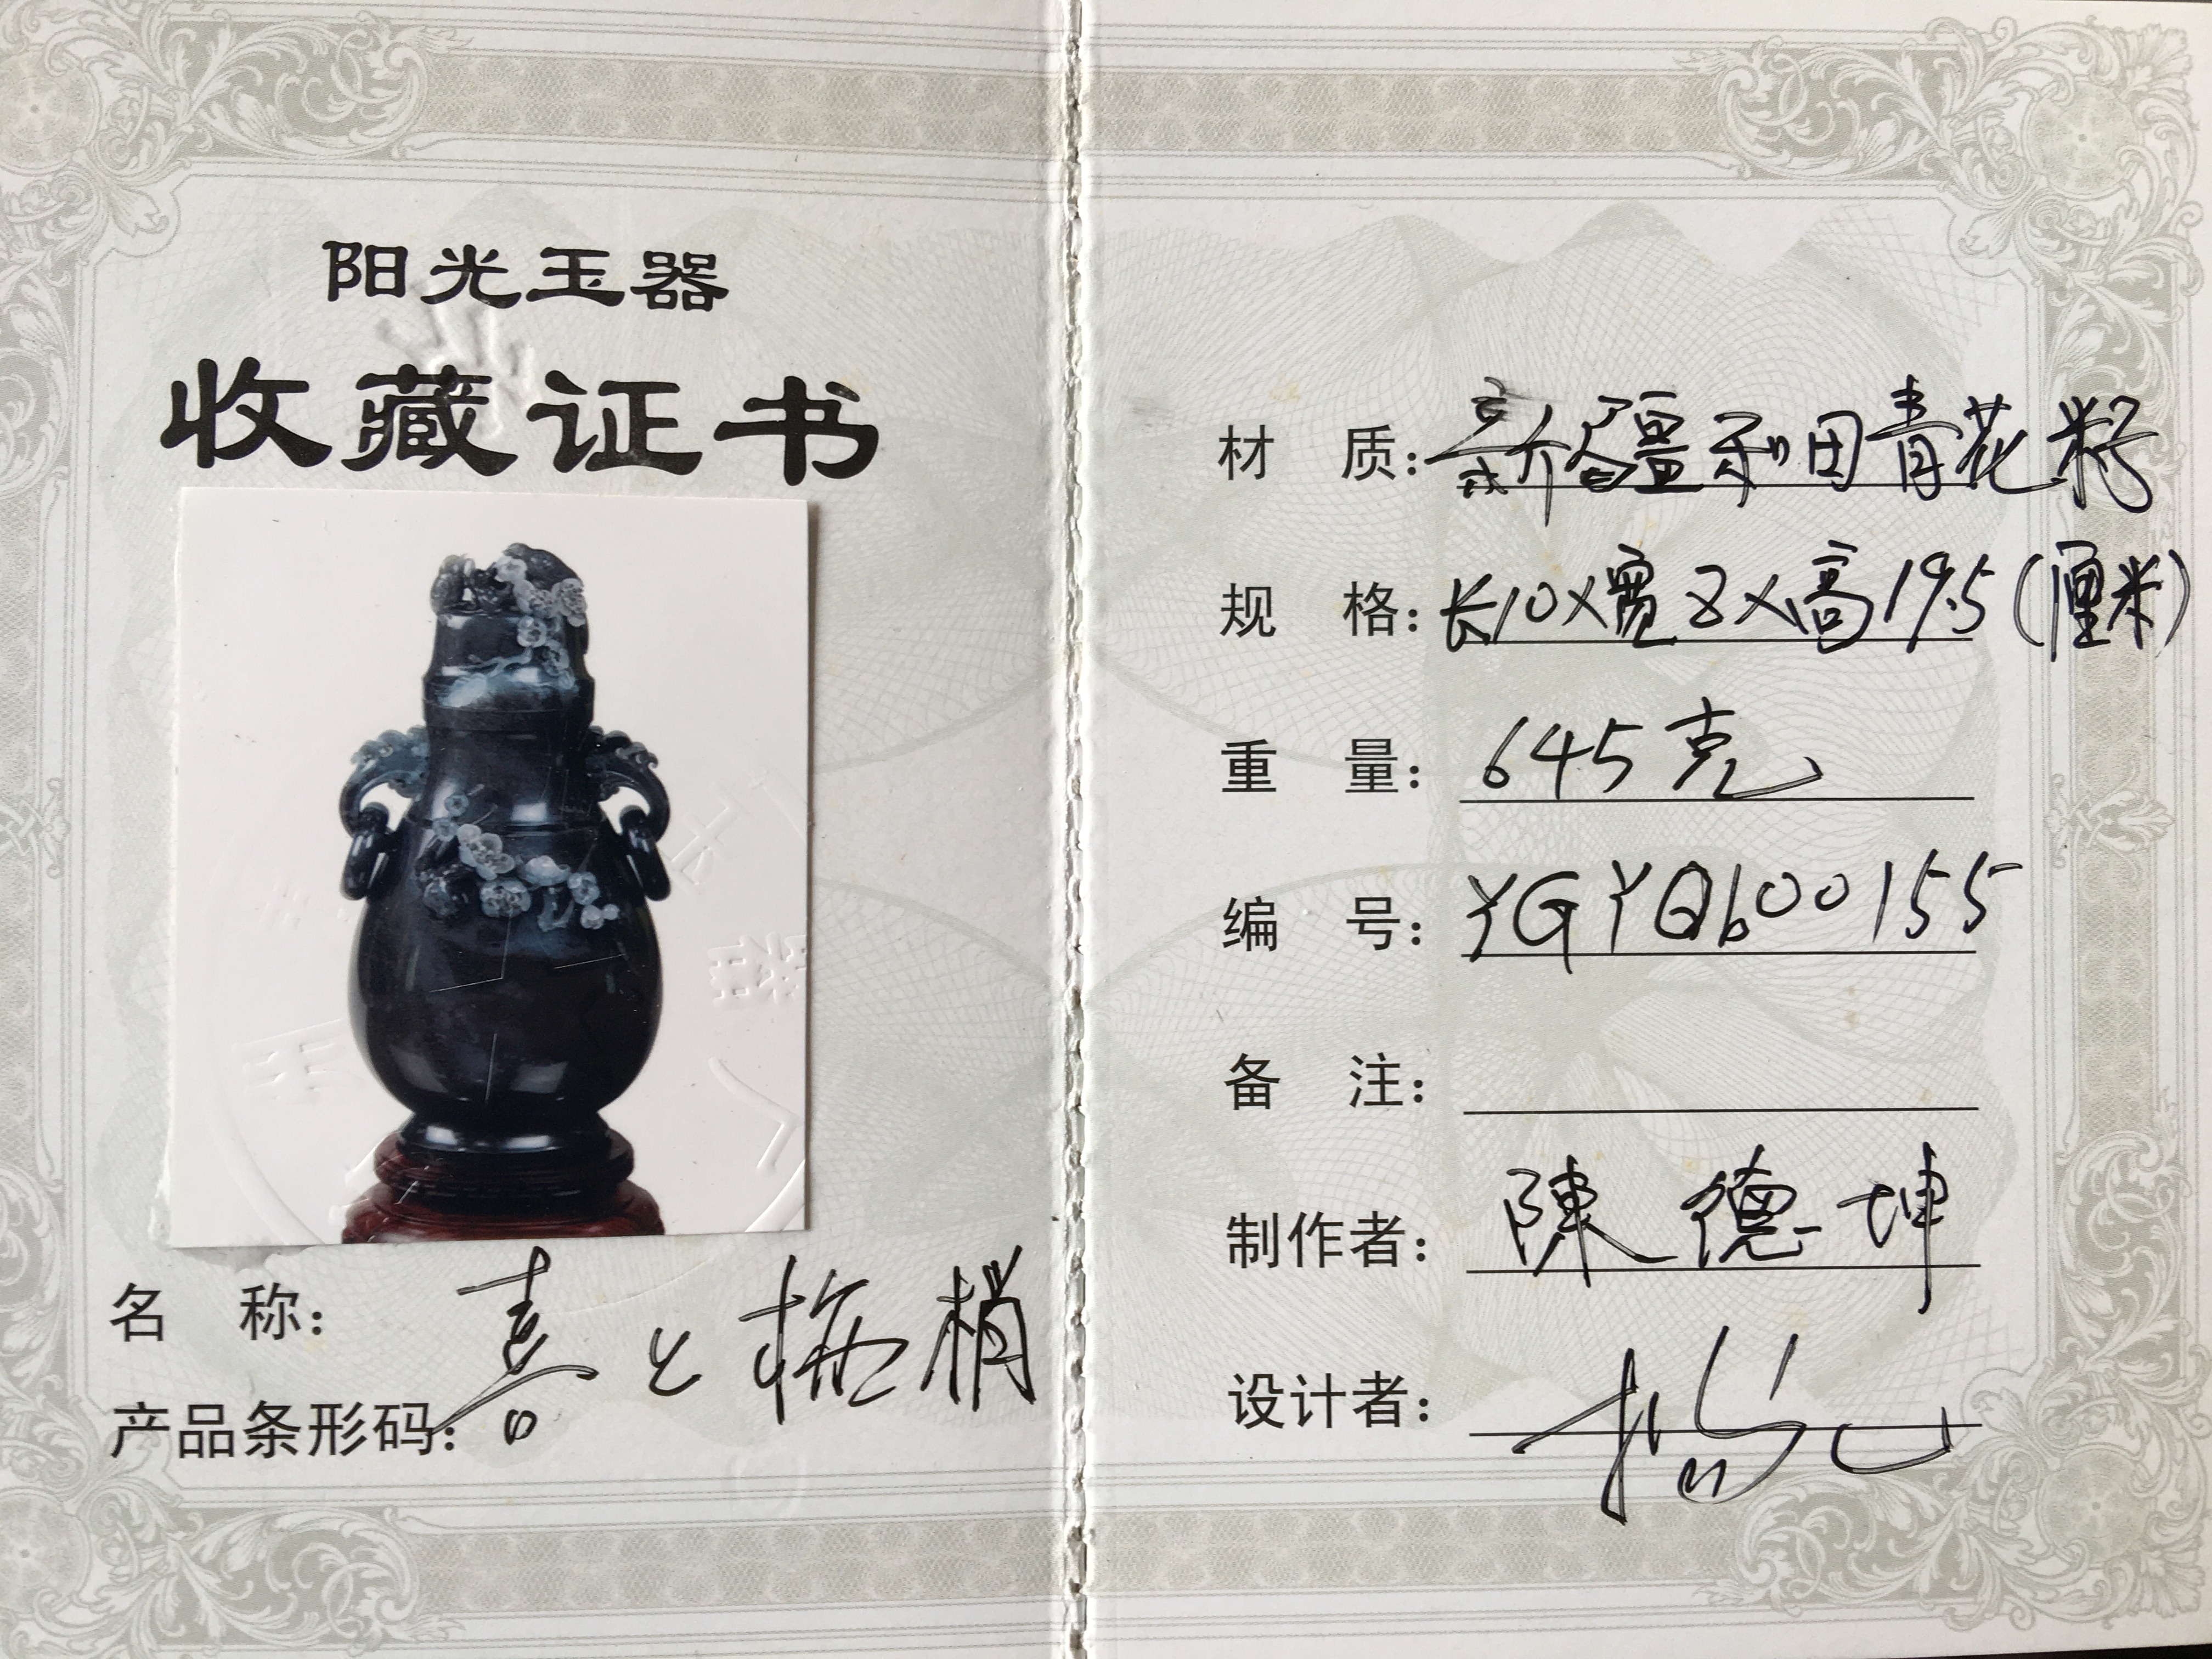 阳光玉器
收藏证书
名 称: 喜上梅梢
产品条形码:
材 质: 新疆和田青花籽
规 格: 长10×宽8×高19.5(厘米)
重 量: 645克
编 号: YGYQb00155
备 注:
制作者: 陳德坤
设计者: